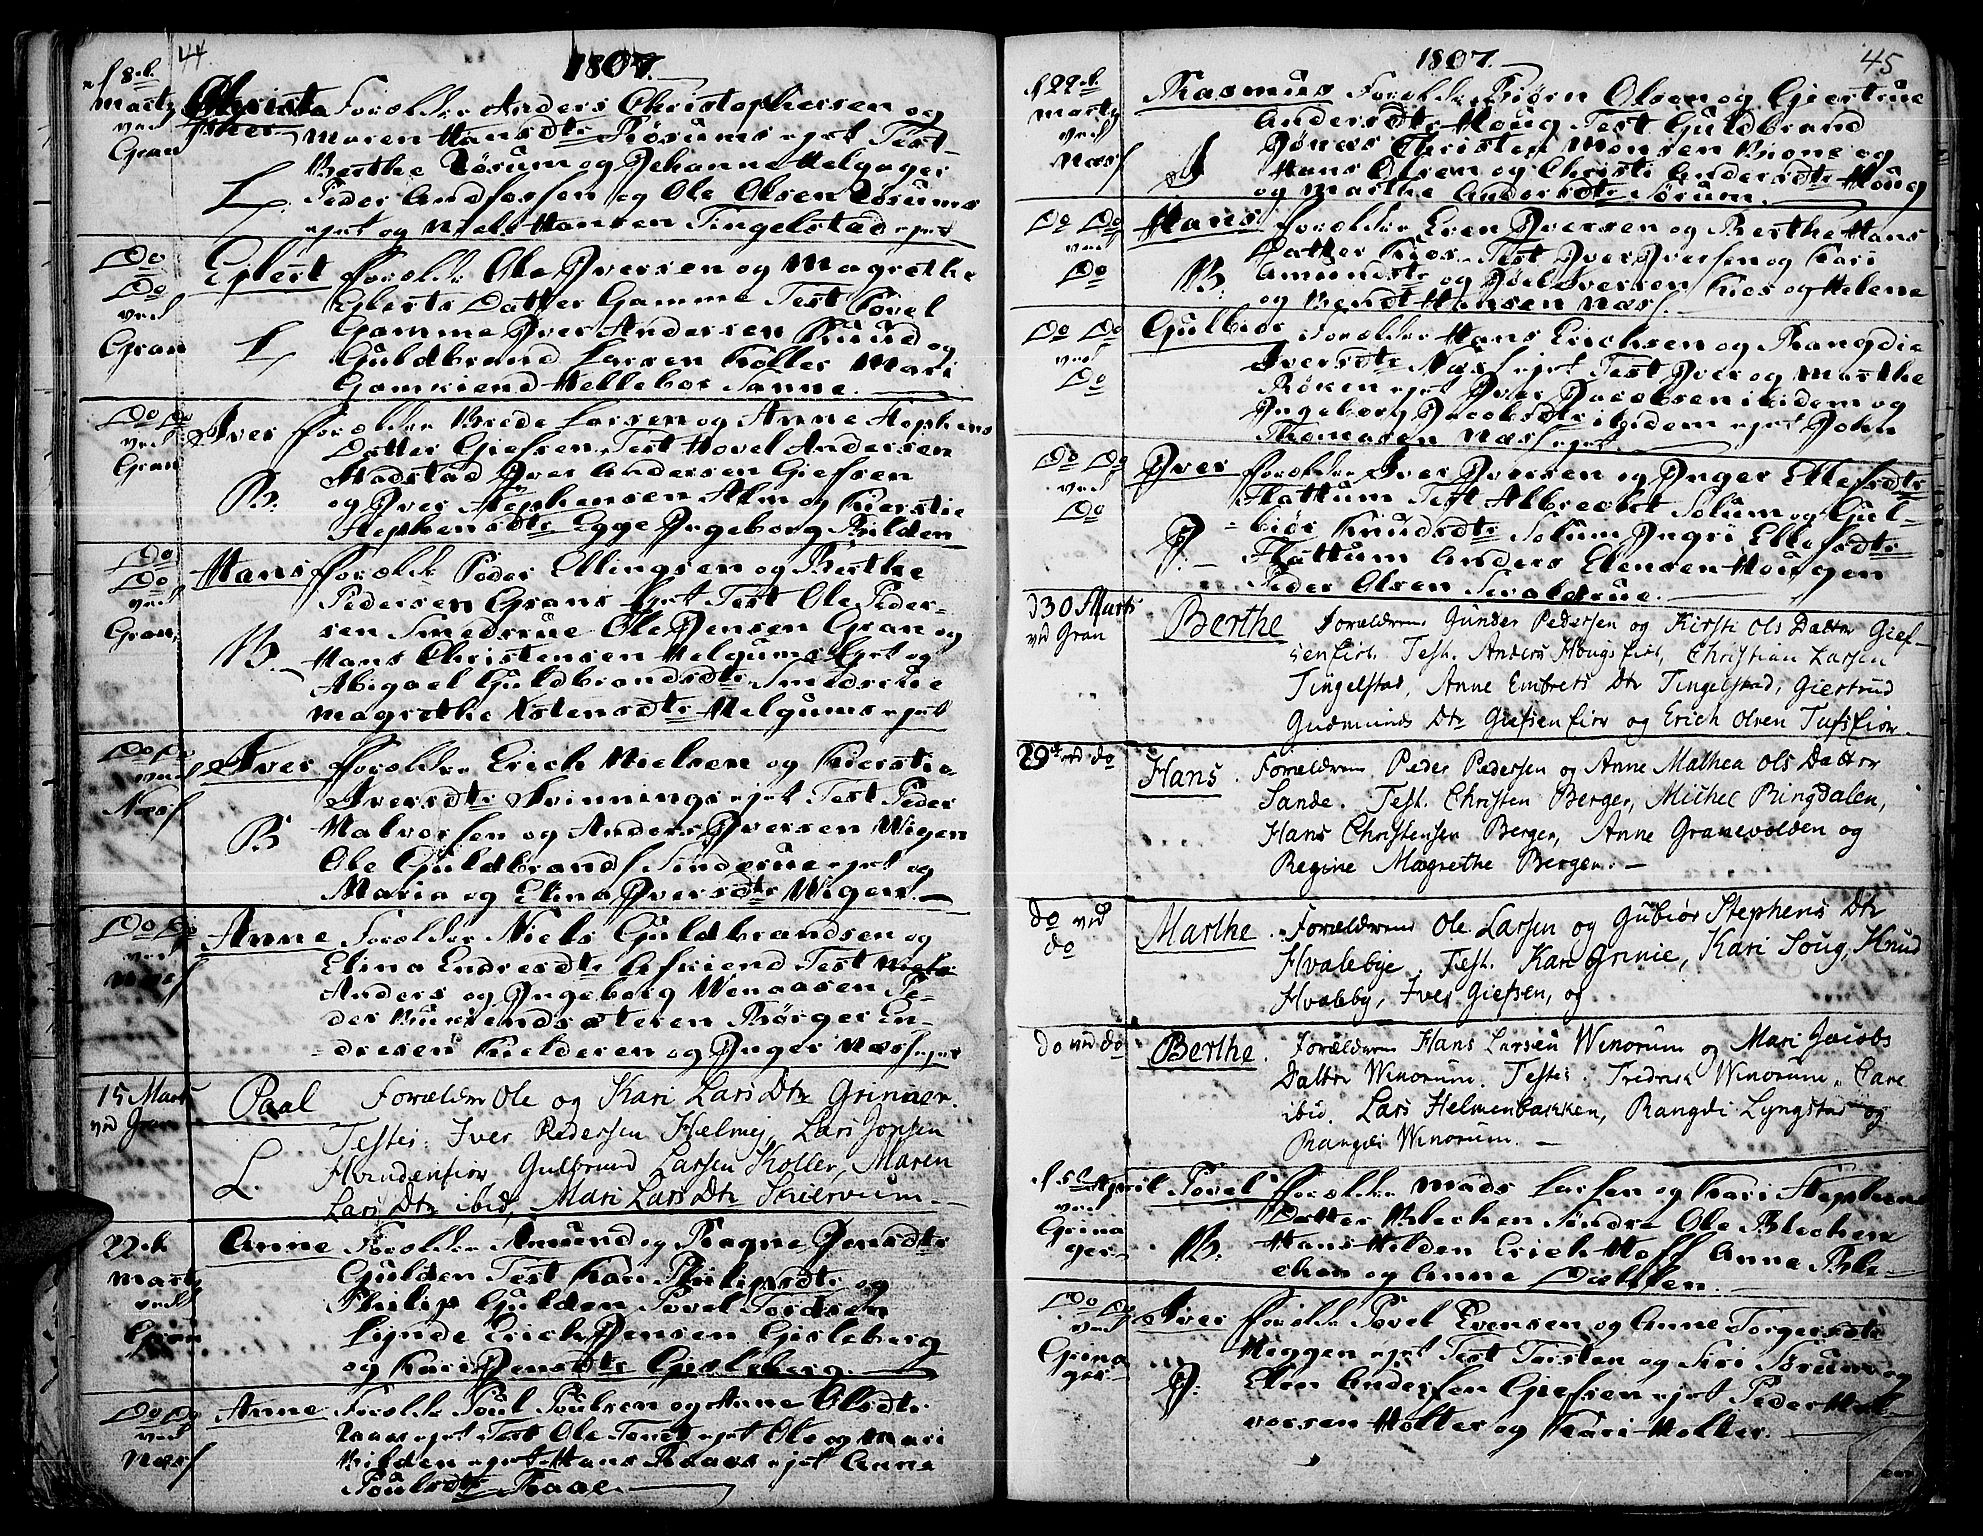 44
1807.
d 8de Martz ved Gran
Christopher Forældre Anders Christophersen og
Maren Hansdtr Rørums ejet Test
Berthe Rørum og Johanne Helgager
L. Peder Andersen og Ole Olsen Rørums
ejet og Niels Hansen Tingelstad ejet
Do Do ved Gran
Eglert Forældre Ole Iversen og Magrethe
Eglerts Datter Gamme Test Povel
Gamme Iver Andersen Knud og
L Guldbrand Larsen Koller Mari
Gamkiend Hellebor Sanne.
Do Do ved Gran
Iver Forældre Brede Larsen og Anne Stephens
Datter Giefsen Test Hovel Andersen
Hadstad Iver Andersen Giefsen
B. og Iver Stephensen Alm og Kierstie
Stephensdtr Egge Ingeborg Bilden
Do Do ved Gran,
Hans Forældre Peder Ellingsen og Berthe
Pedersen Grans ejet Test Ole Peder-
sen Smedsrue Ole Jensen Gran og
B. Hans Christensen Helgums ejet og
Abigael Guldbrandsdtr Smedsrue
Magrethe Astensdtr Helgums ejet
Do Do ved Næss
Iver Forældre Erich Nielsen og Kierstie
Iversdtr Svinnings ejet Test Peder
B Halvorsen og Anders Iversen Wigen
Ole Guldbrands Sinderue ejet og
Maria og Elina Iversdtr Wigen.
Do Do ved Næss
Anne Forældre Niels Guldbrandsen og
Elina Endresdtr Test
Anders og Ingeborg Wenaasen Pe-
der Børger En-
dresen Kielderen og Inger Næss ejet
15 Marts ved Gran
Paal Forældre Ole og Kari Lars Dtr Grinaer.
Testes: Iver Pedersen Helmej, Lars Jonsen
L. Hvindeneier Gulbrand Larsen Koller, Maren
Lars Dtr ibid, Mari Lars Dtr
22de Martz ved Gran
Anne Forældre Amund og Ragne Jensdtr
Gulden Test Kari Philipsdtr og
Philip Gulden Povel Tordsen
Lynde Erich Jensen Gisleberg
og Kari Jensdtr Gisleberg
Do Do ved Næss
Anne Forældre Poul Poulsen og Anne Olsdtr
Raas ejet Test Ole ejet Ole og Mari
Bilden ejet Hans Raas ejet Anne
Poulsdtr Raae.
1807
45
d 22de Marts ved Næss
Rasmus Forældre Biørn Olsen og Giertrue
Andersdtr Houg Test Guldbrand
Jønas Christen Monsen Bione og
Hans Olsen og Christi Andersdtr Houg
og Marthe Andersdtr Sørum.
Do Do ved Do
Hans Forældre Even Iversen og Berthe Hans
Datter Kios. Test Iver Iversen og Kari
B. Amundsdtr og Joel Iversen Kios og Helene
og Bendt Hansen Næss.
Do Do ved Do
Gulbior Forældre Hans Erichsen og Rangdie
Iversdtr Næss ejet Test Iver og Marthe
Røken ejet Iver Jacobsen ibidem og
Ingeborg Jacobsdtr ibidem ejet John
Thomasen Næss ejet
Do Do ved Do
Iver Forældre Iver Iversen og Inger Ellefsdtr
Flattum Test Albrecht Solum og Gul-
biør Knudsdtr Solum Ingri Ellefsdtr
P. Flattum Anders Elensen Hougen
Peder Olsen
d 30 Marts ved Gran
Berthe Forældrene Gunder Pedersen og Kirsti Ols Datter Gief-
senfier. Test. Anders Hougsfier, Christian Larsen
Tingelstad, Anne Embrets Dtr Tingelstad, Giertrud
Gudmunds Dtr Giefsenfier og Erich Olsen Tufsfier.
29de ved do
Hans. Forældrene Peder Pedersen og Anne Mathea Ols Datter
Sande. Test. Christen Berger, Michel Ringdalen,
Hans Christensen Berger, Anne Granevolden og
Regine Magrethe Bergen.
do ved do
Marthe. Forældrene Ole Larsen og Gubiør Stephens Dtr
Hvalebye. Test. Kari Grinie, Kari Soug, Knud
Hvaleby, Iver Giefsen, og
do ved do
Berthe. Forældrene Hans Larsen Winorum og Mari Jacobs
Datter Winorum. Testes. Fredrik Winorum, Care
ibid. Lars Helmenbakken, Rangdi Lyngstad og
Rangdi Winorum.
d 5te April ved Grinager
Povel Forældre Mads Larsen og Kari Stephens
Datter Blechen Sindre Ole Blechen
B. Hans Hilden Erich Hoff Anne Ble-
chen og Anne Dahlen.
Do Do ved Grinager
Iver Forældre Povel Evensen og Anne Torgersdtr
Heggen ejet Test Torsten og Siri Sørum og
P. Elen Andersen Giefsen ejet Peder Hal-
vorsen Holter og Kari Holter.